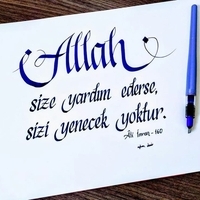 Allah
size yardım ederse,
sizi yenecek yoktur.
Ali İmran - 160